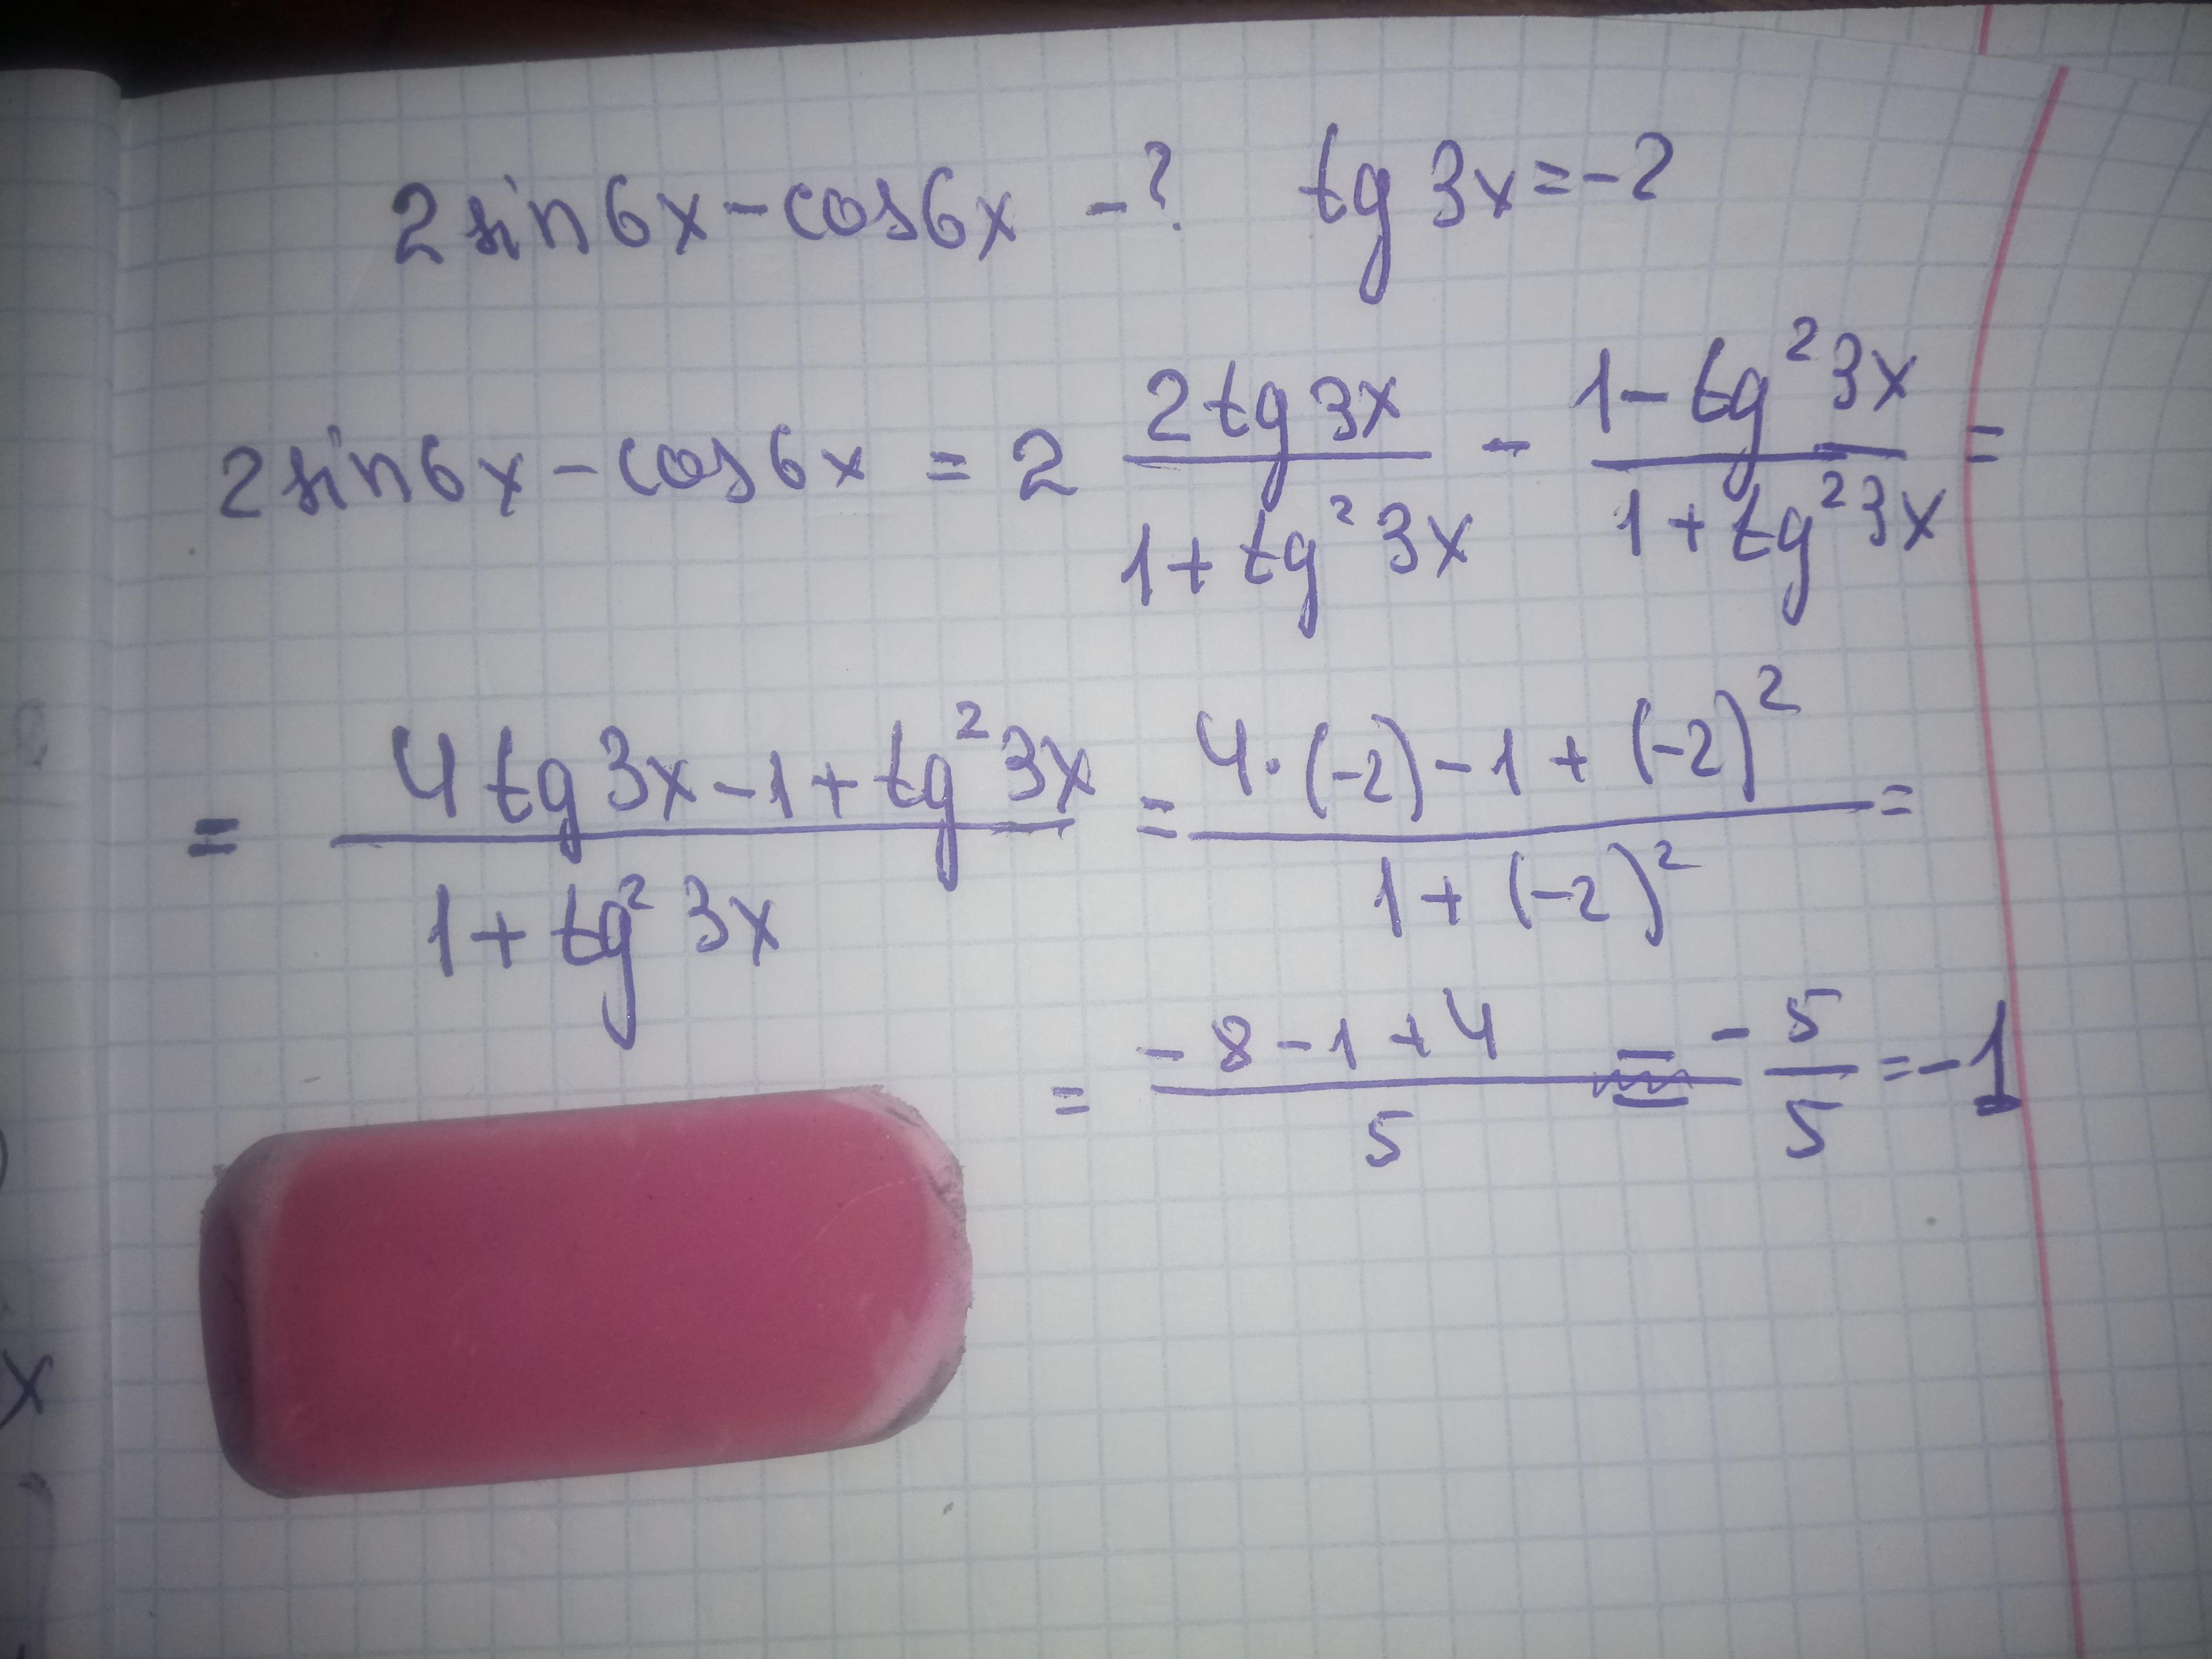 2sin6x-cos6x -? tg 3x=-2
2sin6x-cos6x = 2 \frac{2tg 3x}{1+tg^2 3x} - \frac{1-tg^2 3x}{1+tg^2 3x} =
= \frac{4tg 3x-1+tg^2 3x}{1+tg^2 3x} = \frac{4·(-2)-1+(-2)^2}{1+(-2)^2} =
= \frac{-8-1+4}{5} = -\frac{5}{5} = -1
x